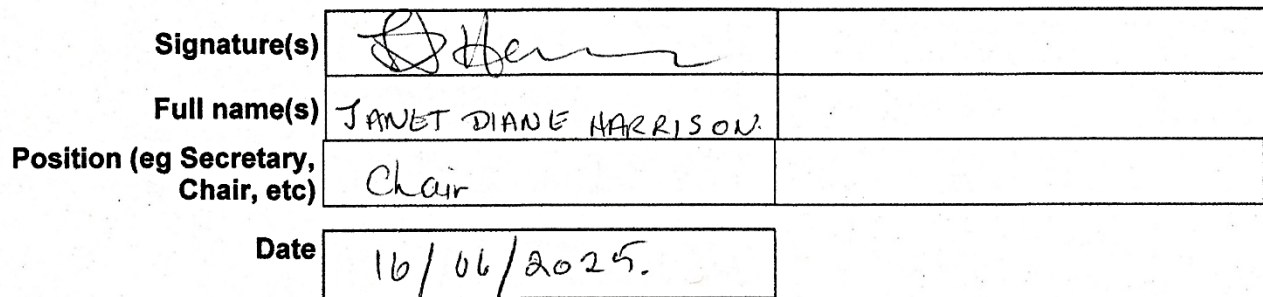 Signature(s)
Full name(s) JANET DIANE HARRISON.
Position (eg Secretary,
Chair, etc) Chair
Date 16/06/2025.